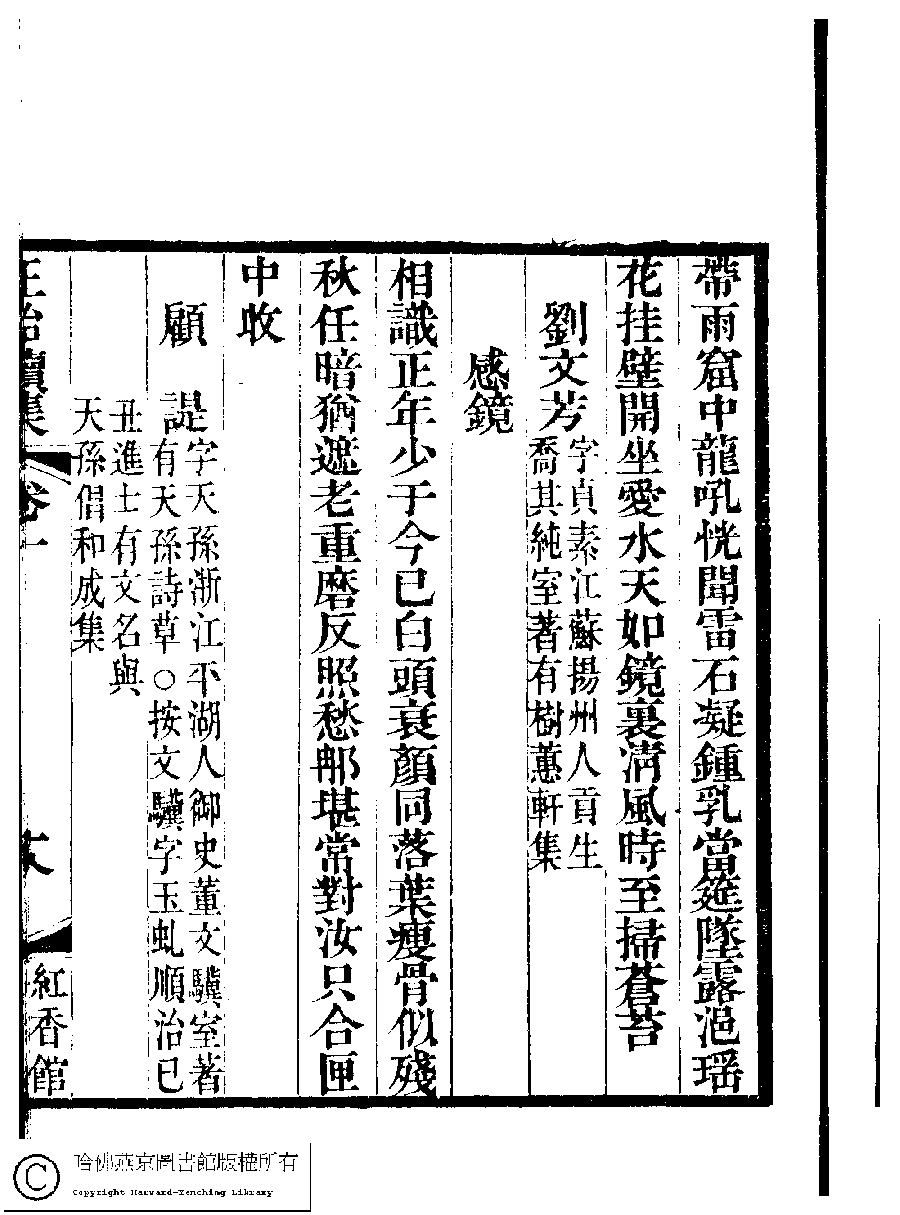 帶雨窟中龍吼恍聞雷石凝鍾乳當筵墜露浥瑶
花挂壁開坐愛水天如鏡裏清風時至掃蒼苔
劉文芳
字貞素江蘇揚州人貢生
喬其純室著有樹蕙軒集
感鏡
相識正年少于今已白頭衰顏同落葉瘦骨似殘
秋任暗猶遮老重磨反照愁那堪常對汝只合匣
中收
顧諟
字天孫浙江平湖人御史董文驥室著
有天孫詩草○按文驥字玉虬順治已
丑進士有文名與
天孫倡和成集
正始續集
卷一
紅香館
哈佛燕京圖書館版權所有
Copyright Harvard-Yenching Library